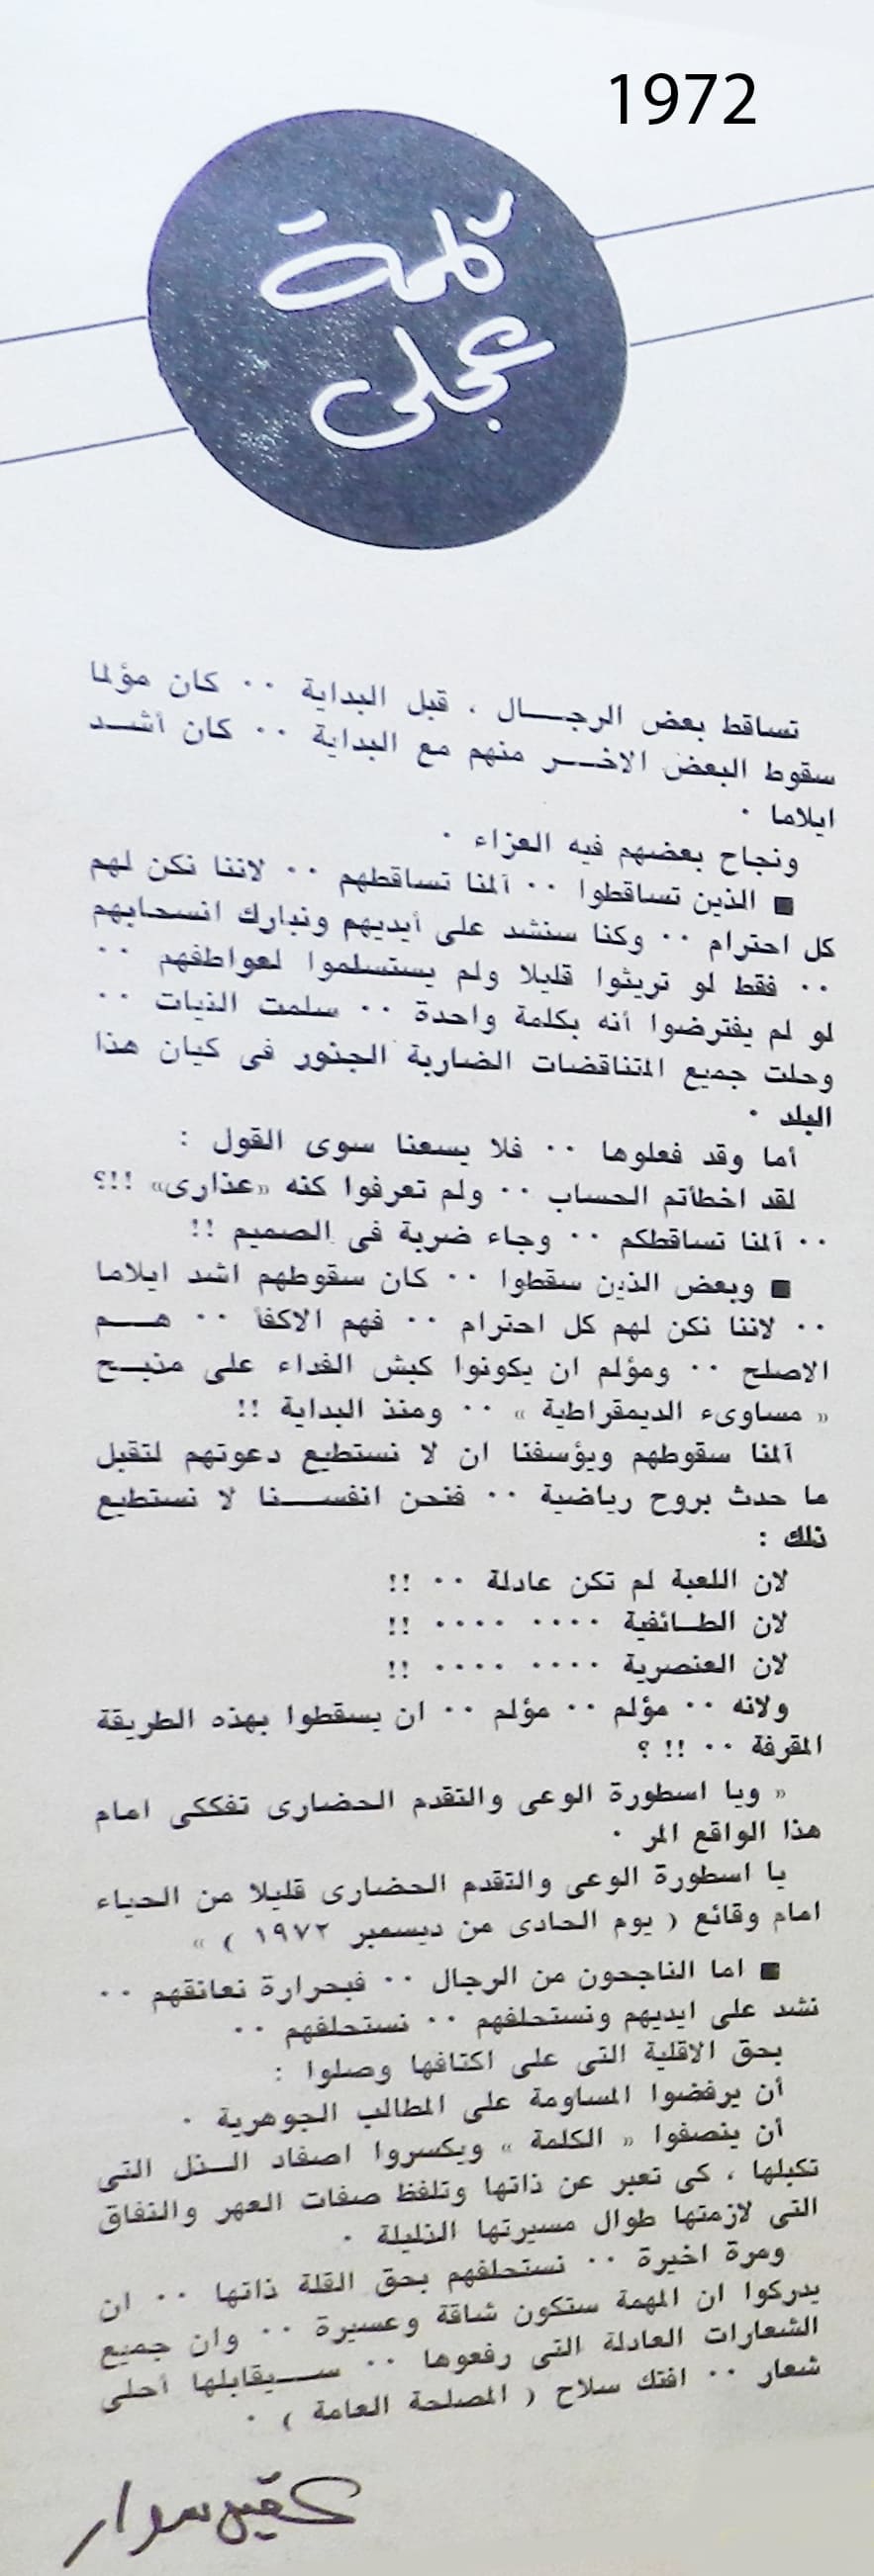 1972
كلمة
عجلى
تساقط بعض الرجـــال ، قبل البداية ٠٠ كان مؤلما
سقوط البعض الاخـــر منهم مع البداية ٠٠ كان أشـــد
ايلاما ٠
ونجاح بعضهم فيه العزاء ٠
■ الذين تساقطوا ٠٠ آلمنا تساقطهم ٠٠ لاننا نكن لهم
كل احترام ٠٠ وكنا سنشد على أيديهم ونبارك انسحابهم
٠٠ فقط لو تريثوا قليلا ولم يستسلموا لعواطفهم ٠٠
لو لم يفترضوا أنه بكلمة واحدة ٠٠ سلمت النيات ٠٠
وحلت جميع المتناقضات الضاربة الجذور فى كيان هذا
البلد ٠
أما وقد فعلوها ٠٠ فلا يسعنا سوى القول :
لقد اخطأتم الحساب ٠٠ ولم تعرفوا كنه «عذارى» !!؟
٠٠ آلمنا تساقطكم ٠٠ وجاء ضربة فى الصميم !!
■ وبعض الذين سقطوا ٠٠ كان سقوطهم اشد ايلاما
٠٠ لاننا نكن لهم كل احترام ٠٠ فهم الاكفأ ٠٠ هـــم
الاصلح ٠٠ ومؤلم ان يكونوا كبش الفداء على مذبـــح
« مساوىء الديمقراطية » ٠٠ ومنذ البداية !!
آلمنا سقوطهم ويؤسفنا ان لا نستطيع دعوتهم لتقبل
ما حدث بروح رياضية ٠٠ فنحن انفســـنا لا نستطيع
ذلك :
لان اللعبة لم تكن عادلة ٠٠ !!
لان الطـائفية ٠٠٠٠ ٠٠٠٠ !!
لان العنصرية ٠٠٠٠ ٠٠٠٠ !!
ولانه ٠٠ مؤلم ٠٠ مؤلم ٠٠ ان يسقطوا بهذه الطريقة
المقرفة ٠٠ !! ؟
« ويا اسطورة الوعى والتقدم الحضارى تفككى امام
هذا الواقع المر ٠
يا اسطورة الوعى والتقدم الحضارى قليلا من الحياء
امام وقائع ( يوم الحادى من ديسمبر ١٩٧٢ ) »
■ اما الناجحون من الرجال ٠٠ فبحرارة نعانقهم ٠٠
نشد على ايديهم ونستحلفهم ٠٠ نستحلفهم ٠٠
بحق الاقلية التى على اكتافها وصلوا :
أن يرفضوا المساومة على المطالب الجوهرية ٠
أن ينصفوا « الكلمة » ويكسروا اصفاد الـــذل التى
تكبلها ، كى تعبر عن ذاتها وتلفظ صفات العهر والنفاق
التى لازمتها طوال مسيرتها الذليلة ٠
ومرة اخيرة ٠٠ نستحلفهم بحق القلة ذاتها ٠٠ ان
يدركوا ان المهمة ستكون شاقة وعسيرة ٠٠ وان جميع
الشعارات العادلة التى رفعوها ٠٠ ســـيقابلها أحلى
شعار ٠٠ افتك سلاح ( المصلحة العامة ) ٠
عقيل سوار